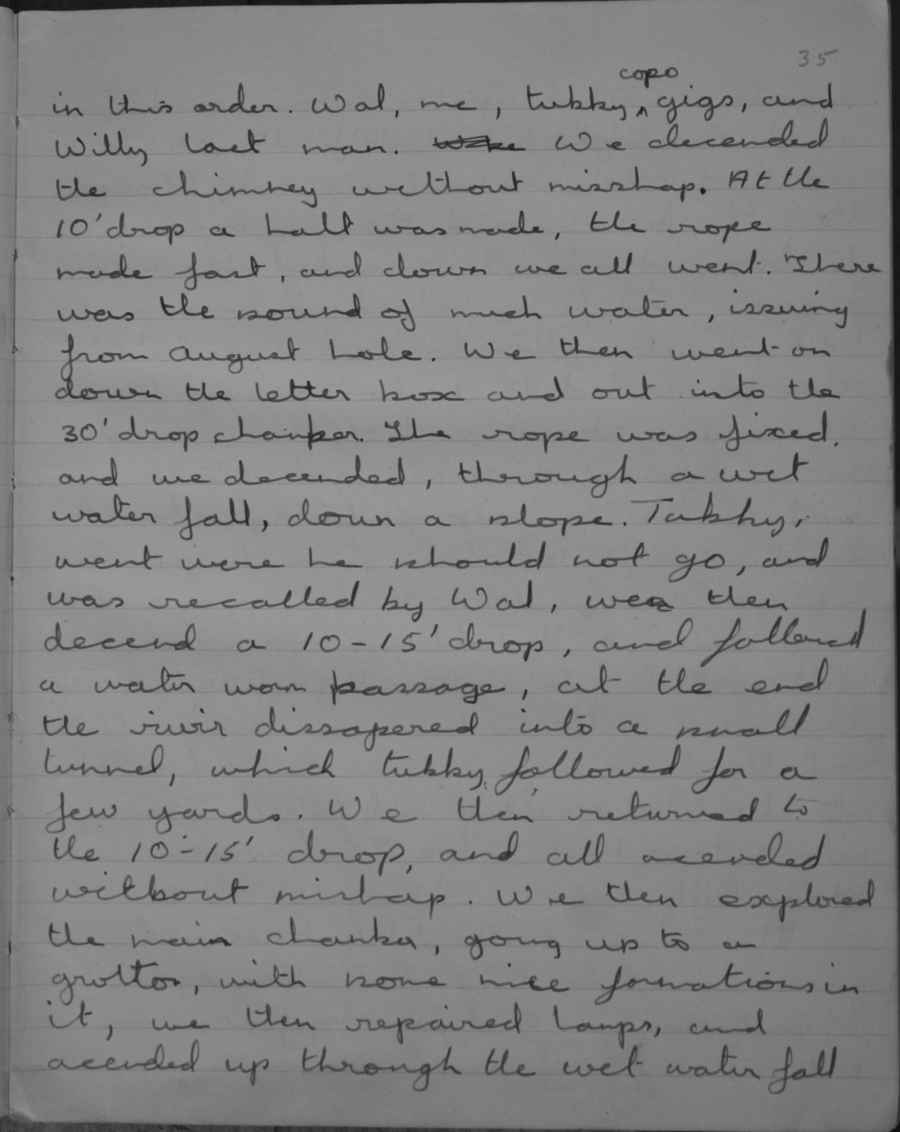 35
in this order. Wal, me, tubby, copo gigs, and
Willy last man. We decended
the chimney without misshap. At the
10' drop a halt was made, the rope
made fast, and down we all went. There
was the sound of much water, issuing
from august hole. We then went on
down the letter box and out into the
30' drop chamber. The rope was fixed,
and we decended, through a wet
water fall, down a slope. Tubby,
went were he should not go, and
was recalled by Wal, we then
decend a 10-15' drop, and followed
a water worn passage, at the end
the river dissapered into a small
tunnel, which tubby, followed for a
few yards. We then returned to
the 10'-15' drop, and all acended
without mishap. We then explored
the main chamber, going up to a
grotto, with some nice formations in
it, we then repaired lamps, and
acended up through the wet water fall